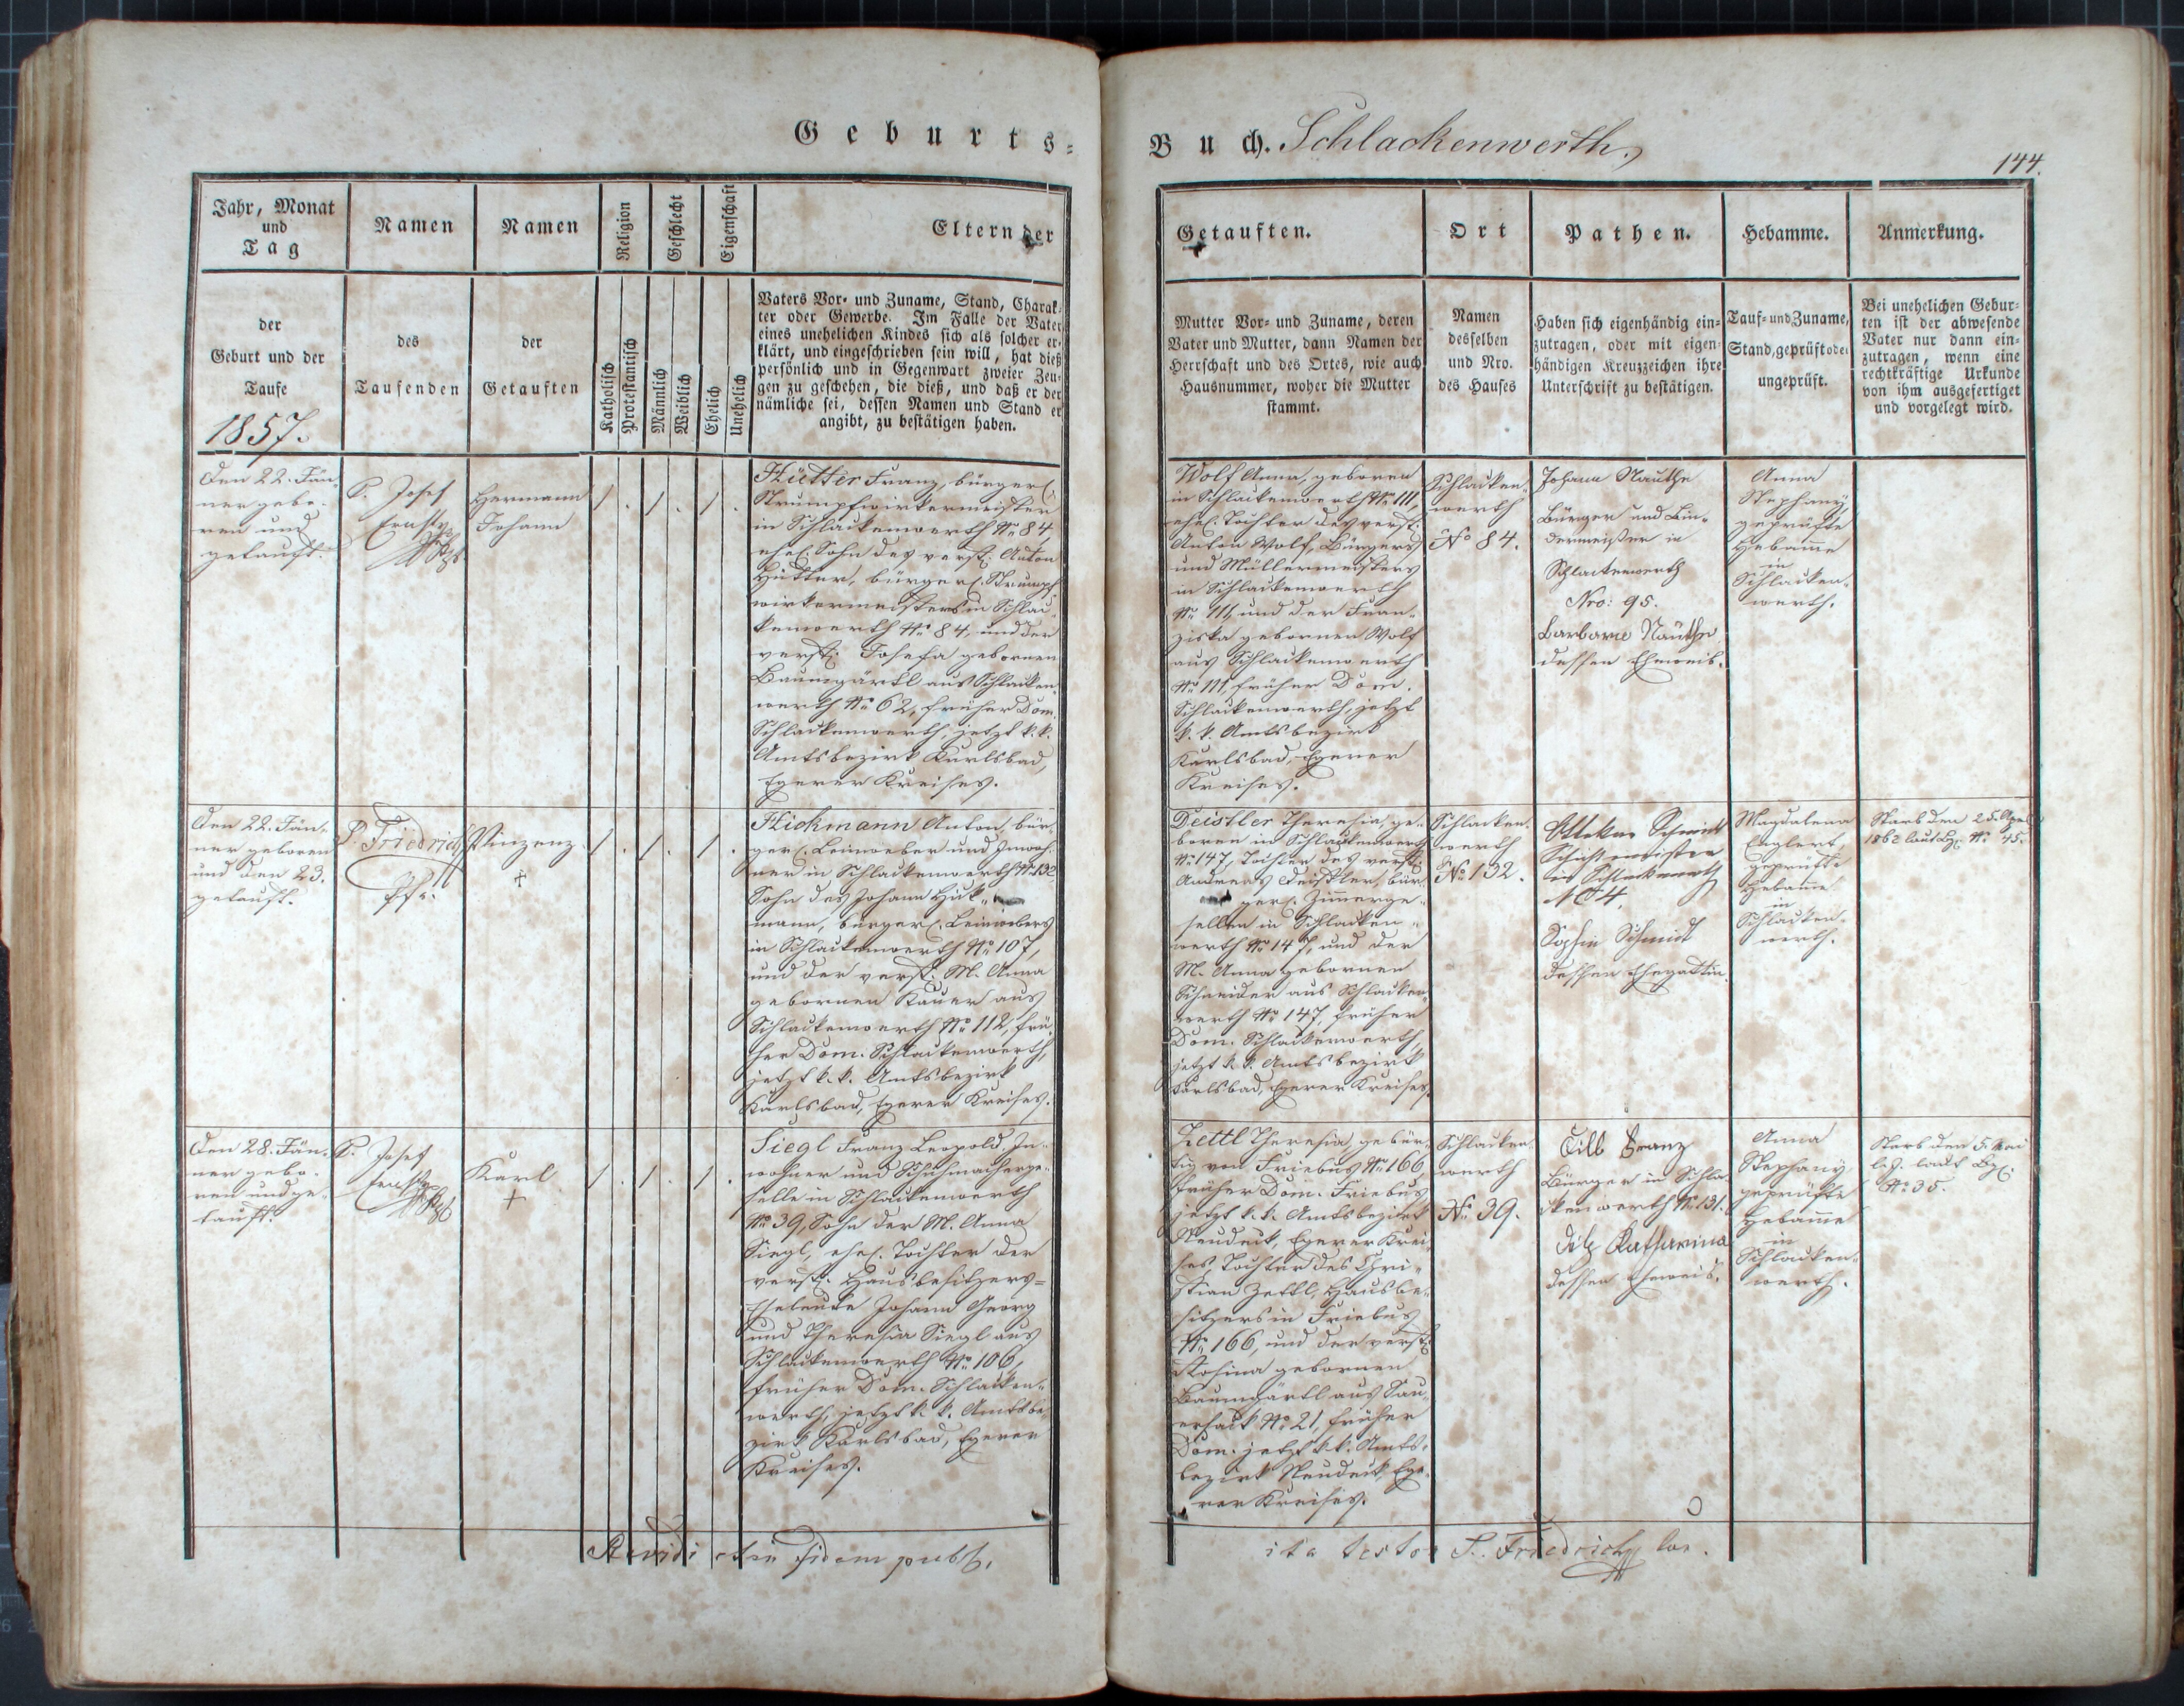 Geburts-
Buch. Schlackenwerth.
144.
Jahr, Monat
und
Tag
der
Geburt und der
Taufe
1857.
Namen
des
Taufenden
Namen
der
Getauften
Religion
Katholisch
Protestantisch
Geschlecht
Männlich
Weiblich
Eigenschaft
Ehelich
Unehelich
Eltern der
Vaters Vor- und Zuname, Stand, Charak-
ter oder Gewerbe. Im Falle der Vater
eines unehelichen Kindes sich als solcher er-
klärt, und eingeschrieben sein will, hat dieß
persönlich und in Gegenwart zweier Zeu-
gen zu geschehen, die dieß, und daß er der
nämliche sei, dessen Namen und Stand er
angibt, zu bestätigen haben.
Getauften.
Mutter Vor- und Zuname, deren
Vater und Mutter, dann Namen der
Herrschaft und des Ortes, wie auch
Hausnummer, woher die Mutter
stammt.
Ort
Namen
desselben
und Nro.
des Hauses
Pathen.
Haben sich eigenhändig ein-
zutragen, oder mit eigen-
händigen Kreuzzeichen ihre
Unterschrift zu bestätigen.
Hebamme.
Tauf- und Zuname,
Stand, geprüft oder
ungeprüft.
Anmerkung.
Bei unehelichen Gebur-
ten ist der abwesende
Vater nur dann ein-
zutragen, wenn eine
rechtkräftige Urkunde
von ihm ausgefertiget
und vorgelegt wird.
Den 22. Jän-
ner gebo-
ren und
getauft.
P. Josef
Ernst
Hermann
Johann
Hütter Franz, bürgerl.
Strumpfwirkermeister
in Schlackenwerth No 84,
ehel. Sohn des verst. Anton
Hütter, bürgerl. Strumpf-
wirkermeisters in Schlac-
kenwerth No 84, und der
verst. Josefa gebornen
Baumgärtl aus Schlacken-
werth No 62, früher Dom.
Schlackenwerth, jetzt k. k.
Amtsbezirk Karlsbad,
Egerer Kreises.
Wolf Anna, geboren
in Schlackenwerth No 111,
ehel. Tochter des verst.
Anton Wolf, Bürgers
und Müllermeisters
in Schlackenwerth
No 111, und der Fran-
ziska gebornen Wolf
aus Schlackenwerth
No 111, früher Dom.
Schlackenwerth, jetzt
k. k. Amtsbezirk
Karlsbad, Egerer
Kreises.
Schlacken-
werth
No 84.
Johann Nauthe
Bürger und Bin-
dermeister in
Schlackenwerth
Nro: 95.
Barbara Nauthe
dessen Eheweib.
Anna
Stephany,
geprüfte
Hebamme
in
Schlacken-
werth.
Den 22. Jän-
ner geboren
und den 23.
getauft.
P. Friedrich
Pfr.
Vinzenz
†
Hickmann Anton, bür-
gerl. Leinweber und Inwoh-
ner in Schlackenwerth No 132
Sohn des Johann Hick-
mann, bürgerl. Leinwebers
in Schlackenwerth No 107,
und der verst. M. Anna
gebornen Kauer aus
Schlackenwerth No 112, frü-
her Dom. Schlackenwerth,
jetzt k. k. Amtsbezirk
Karlsbad, Egerer Kreises.
Deistler Theresia, ge-
boren in Schlackenwerth
No 147, Tochter des verst.
Andreas Deistler, bür-
gerl. Zimmerge-
sellen in Schlacken-
werth No 147, und der
M. Anna gebornen
Schneider aus Schlacken-
werth No 147, früher
Dom. Schlackenwerth,
jetzt k. k. Amtsbezirk
Karlsbad, Egerer Kreises.
Schlacken-
werth
No 132.
Schmidt
in Schlackenwerth
No 4.
Sophie Schmidt
dessen Ehegattin.
Magdalena
Englert,
geprüfte
Hebamme
in
Schlacken-
werth.
Starb den 25.
1862 laut No 45.
Den 28. Jän-
ner gebo-
ren und ge-
tauft.
P. Josef
Ernst
Karl
†
Siegl Franz Leopold In-
wohner und Schuhmacherge-
selle in Schlackenwerth
No 39, Sohn der M. Anna
Siegl, ehel. Tochter der
verst. Hausbesitzers-
Eheleute Johann Georg
und Theresia Siegl aus
Schlackenwerth No 106,
früher Dom. Schlacken-
werth, jetzt k. k. Amtsbe-
zirk Karlsbad, Egerer
Kreises.
Zettl Theresia, gebür-
tig von Friebus No 166,
früher Dom. Friebus,
jetzt k. k. Amtsbezirk
Neudeck, Egerer Krei-
ses, Tochter des Chri-
stian Zettl, Hausbe-
sitzers in Friebus
No 166, und der verst.
Rosina gebornen
Baumgärtl aus Sau-
ersack No 21, früher
Dom. jetzt k. k. Amts-
bezirk Neudeck, Ege-
rer Kreises.
Schlacken-
werth
No 39.
Till Franz
Bürger in Schla-
ckenwerth No 131.
Katharina
dessen Eheweib.
Anna
Stephany,
geprüfte
Hebamme
in
Schlacken-
werth.
Starb den 5. Mai
l. J. laut
No 35.
fidem publ.
ita testor P. Friedrich loc.